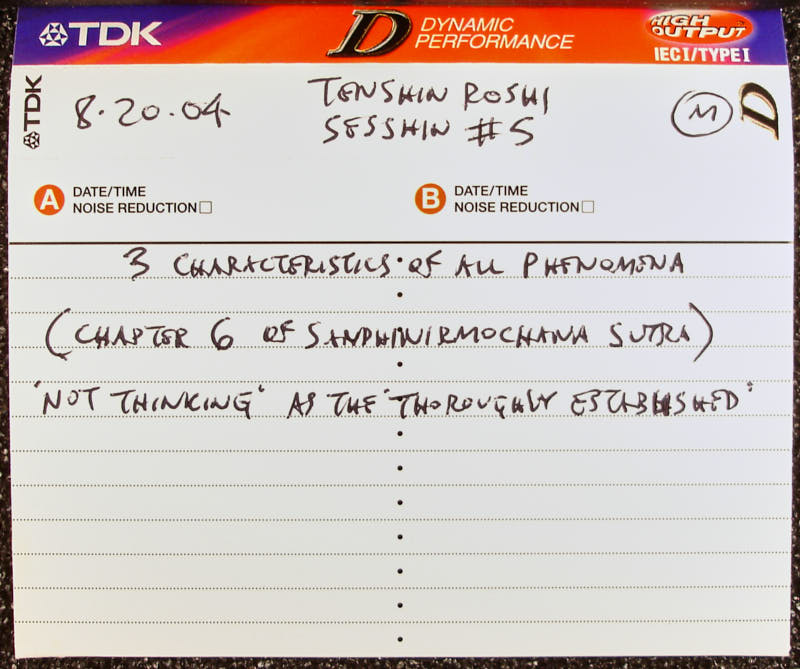 TDK D DYNAMIC PERFORMANCE HIGH OUTPUT
IECI/TYPEI
TDK
8·20·04 TENSHIN ROSHI
SESSHIN #5
M D
A DATE/TIME
NOISE REDUCTION
B DATE/TIME
NOISE REDUCTION
3 CHARACTERISTICS OF ALL PHENOMENA
(CHAPTER 6 OF SANDHINIRMOCHANA SUTRA)
'NOT THINKING' AS THE 'THOROUGHLY ESTABLISHED'